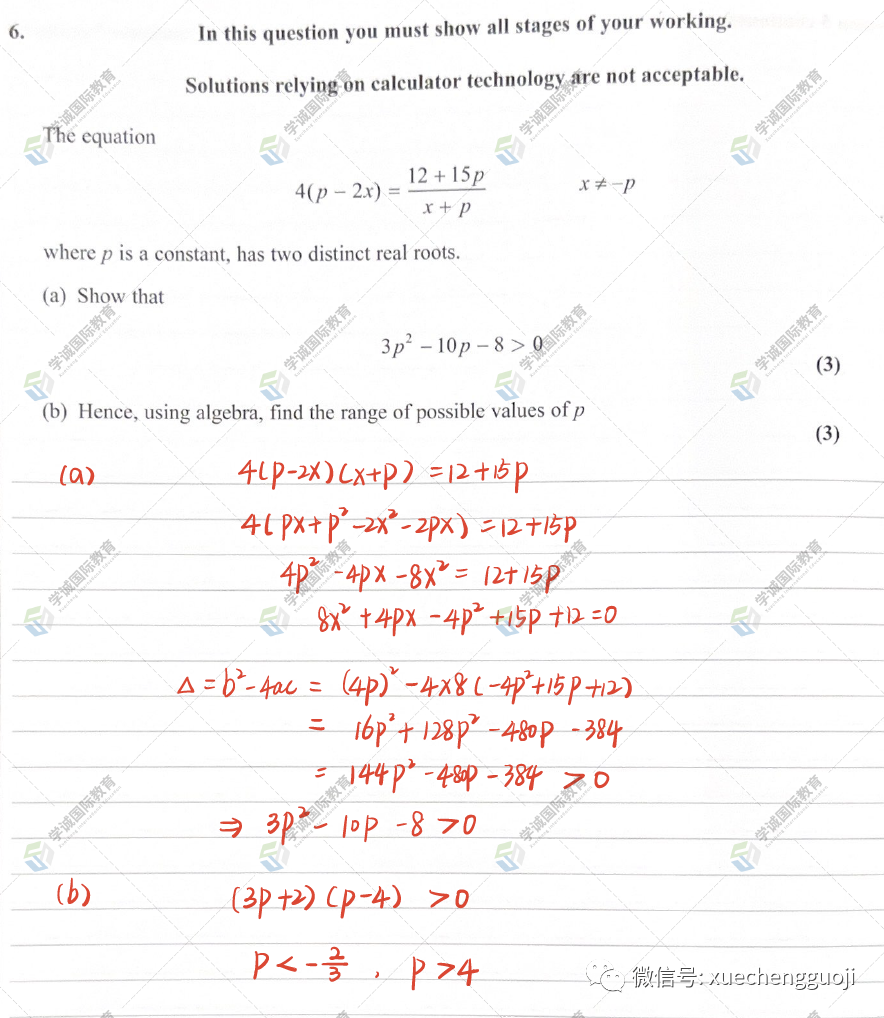 6. In this question you must show all stages of your working.
Solutions relying on calculator technology are not acceptable.
The equation
4(p − 2x) = (12 + 15p)/(x + p)    x ≠ −p
where p is a constant, has two distinct real roots.
(a) Show that
3p² − 10p − 8 > 0
(3)
(b) Hence, using algebra, find the range of possible values of p
(3)
(a) 4(p-2x)(x+p) = 12+15p
4(px+p²-2x²-2px) = 12+15p
4p²-4px-8x² = 12+15p
8x²+4px-4p²+15p+12=0
Δ = b²-4ac = (4p)²-4×8(-4p²+15p+12)
= 16p²+128p²-480p-384
= 144p²-480p-384 > 0
⇒ 3p²-10p-8>0
(b) (3p+2)(p-4) >0
p<-2/3 , p>4
微信号: xuechengguoji
学诚国际教育